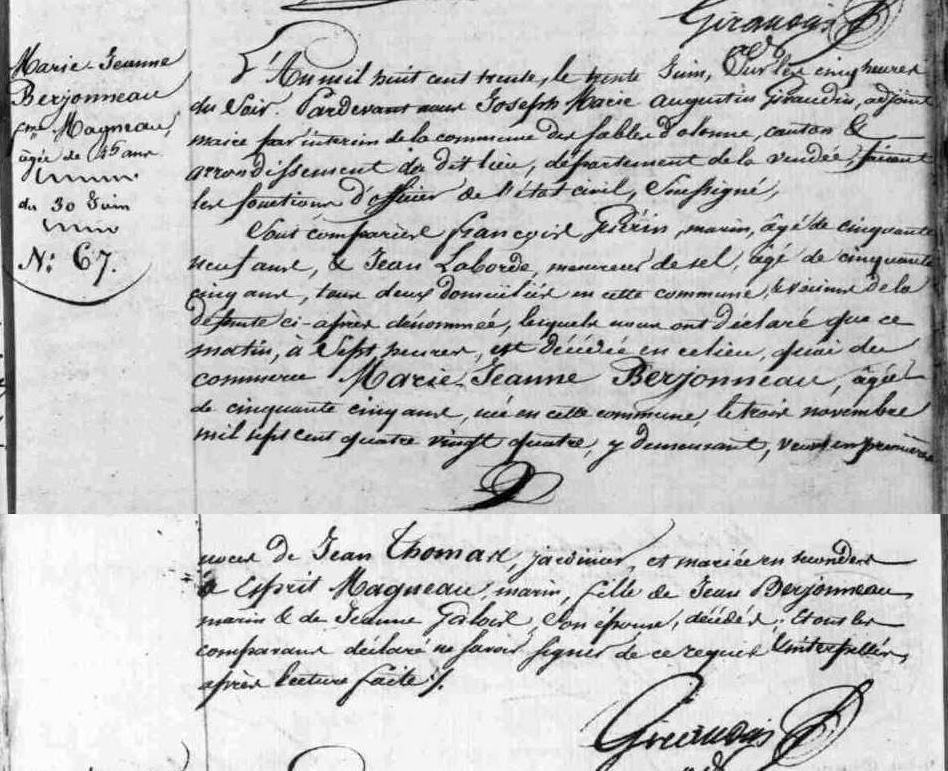 Giraudin
Marie-Jeanne
Berjonneau
fme Magneau,
âgée de 45 ans
du 30 Juin
N: 67.
L'An mil huit cent trente, le trente Juin, Sur les cinq heures
du Soir. Pardevant nous Joseph Marie Augustin Giraudin, adjoint
maire par interim de la commune des Sables d'olonne, canton &
arrondissement du dit lieu, département de la vendée, faisant
les fonctions d'officier de l'état civil, Soussigné,
Sont comparus François Guérin, marin, âgé de cinquante
neuf ans, & Jean Laborde, mesureur de sel, âgé de cinquante
cinq ans, tous deux domiciliés en cette commune, & voisins de la
défunte ci-après dénommée, lesquels nous ont déclaré que ce
matin, à Sept heures, est décédée en ce lieu, quai du
commerce Marie-Jeanne Berjonneau, âgée
de cinquante cinq ans, née en cette commune, le trois novembre
mil sept cent quatre vingt quatre, y demeurant, veuve en premières
noces de Jean Thomas, jardinier, et mariée en secondes
à Esprit Magneau, marin, fille de Jean Berjonneau,
marin & de Jeanne Son épouse, décédés; Et ont les
comparans déclaré ne savoir signer de ce requis & interpellés,
après lecture faite ./.
Giraudin